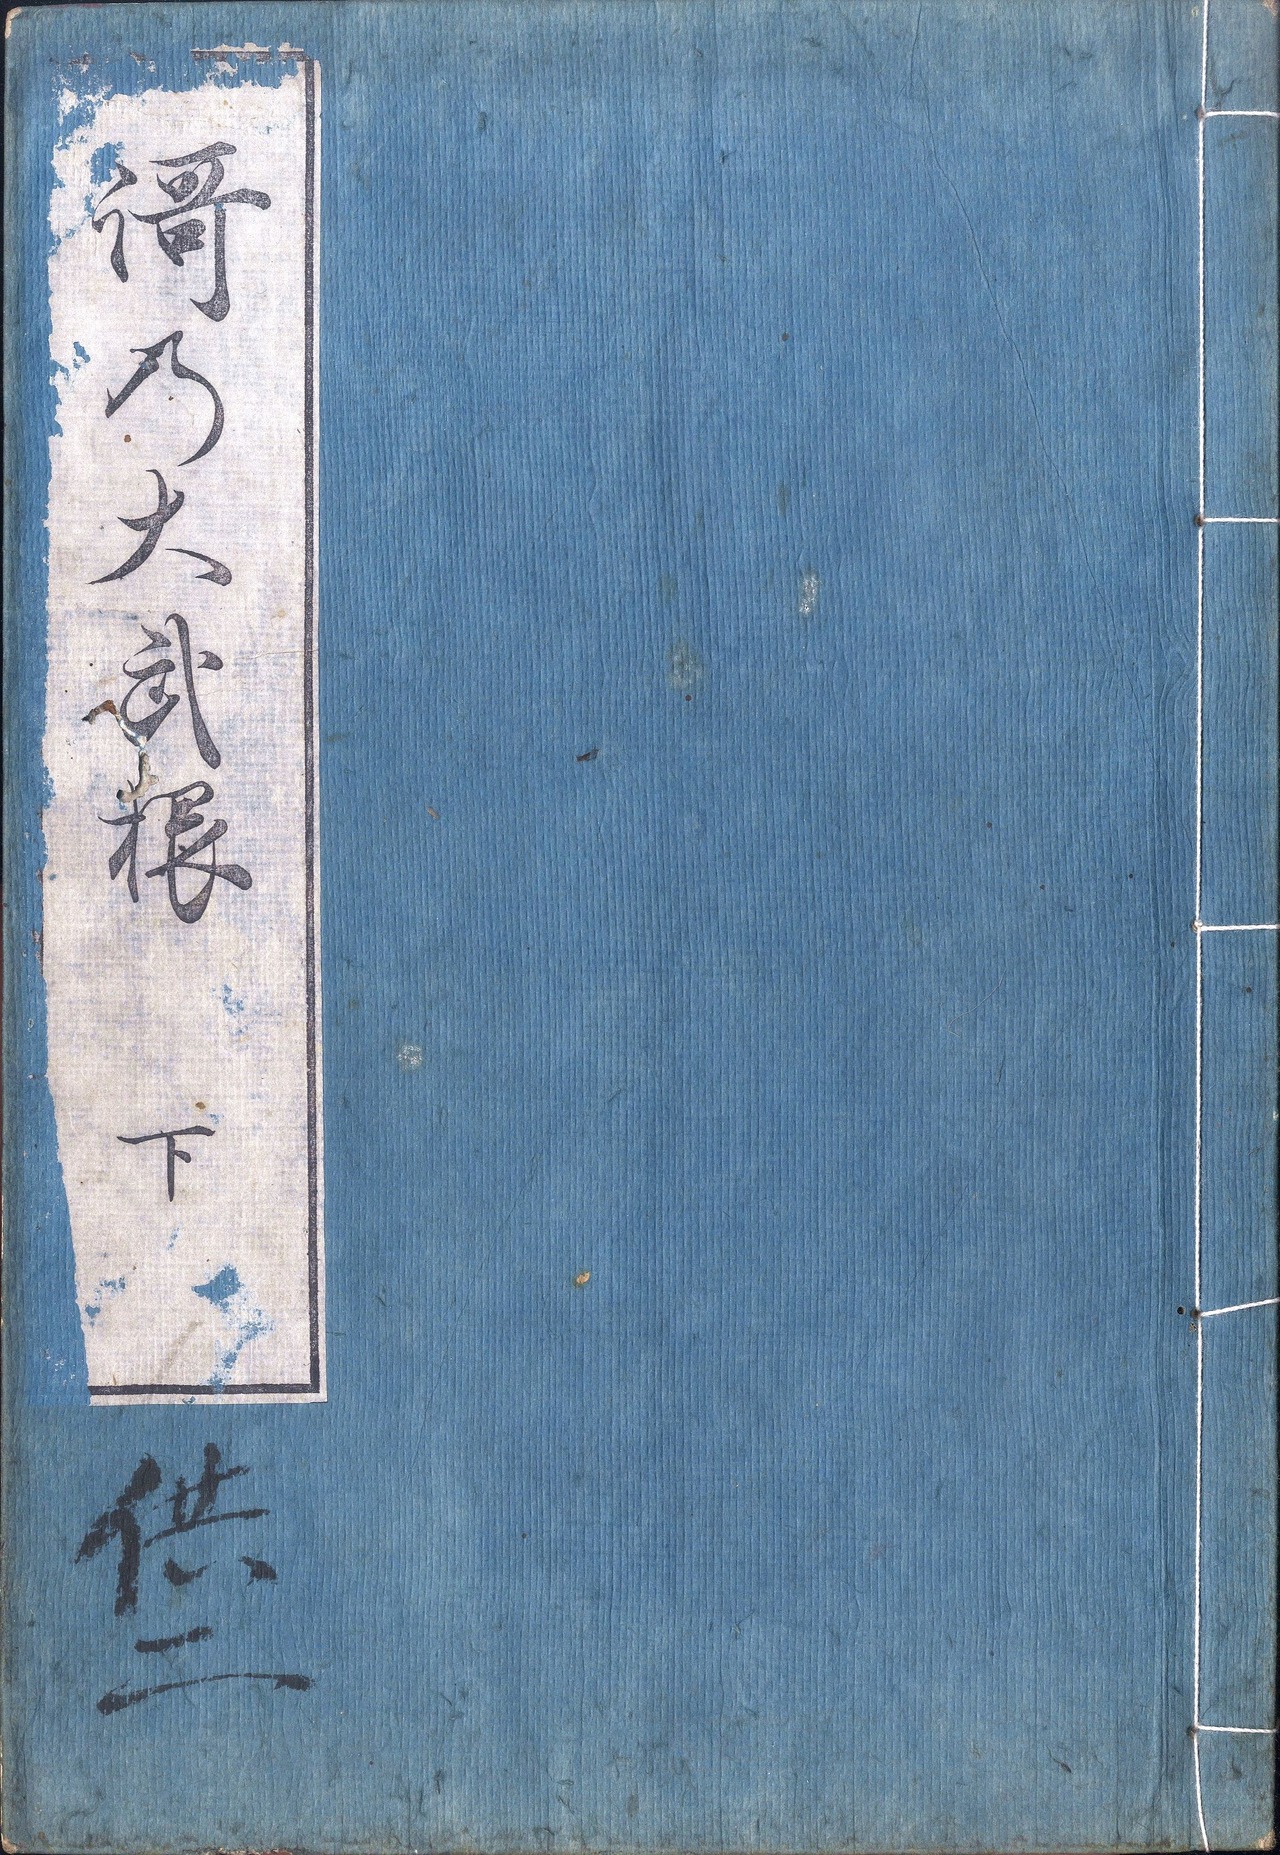 謌乃大武根 下
供二